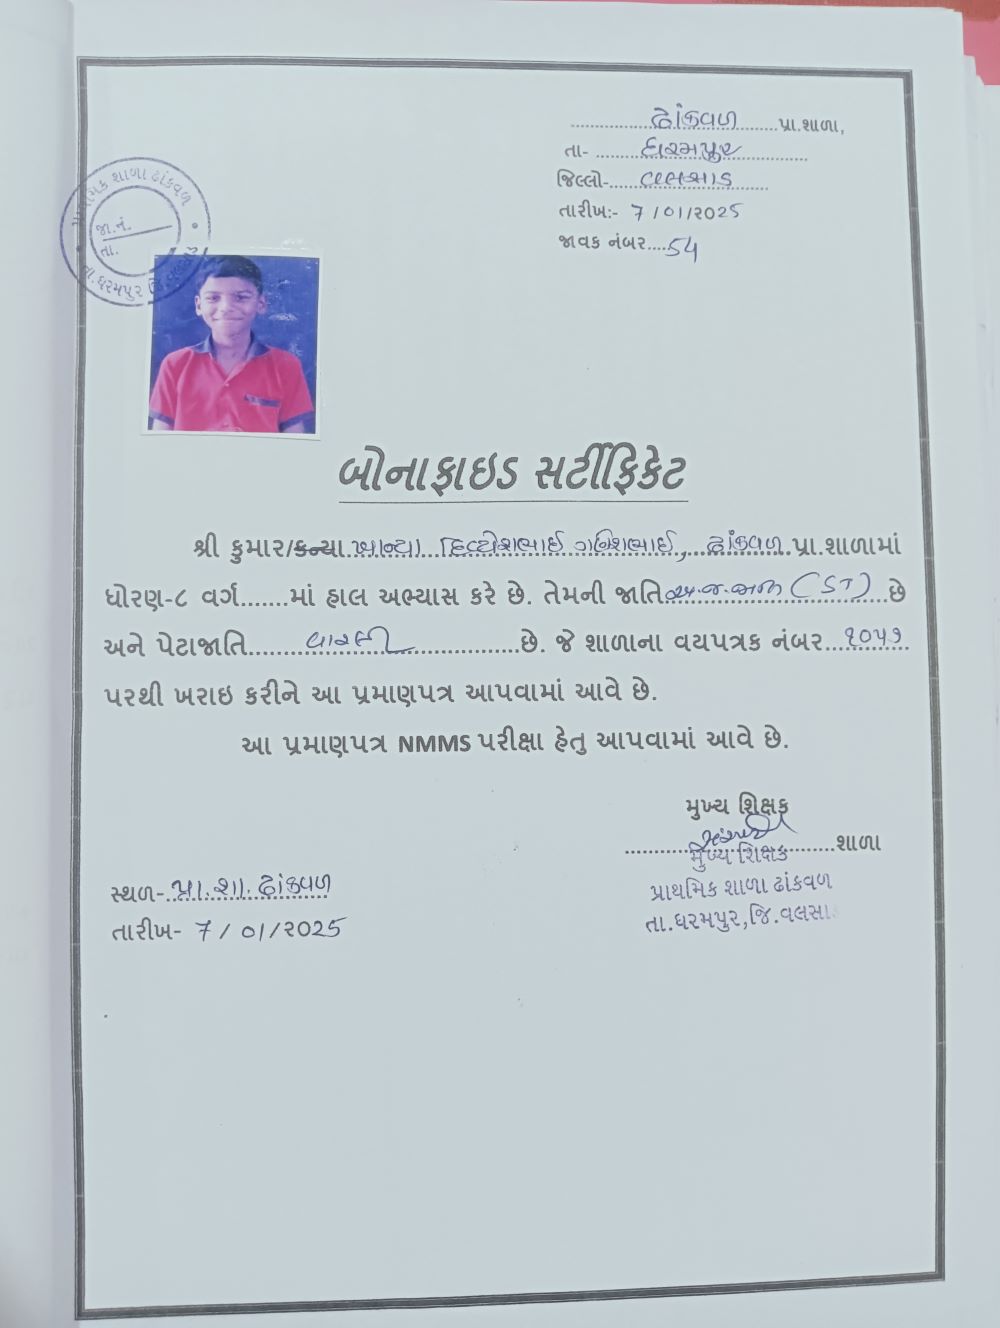 ઢાંકવળ પ્રા.શાળા,
તા- ધરમપુર
જિલ્લો- વલસાડ
તારીખ:- 7/01/2025
જાવક નંબર....54
શાળા ઢાંકવળ
જા.નં.
તા.
તા.ધરમપુર જિ.
બોનાફાઇડ સર્ટીફિકેટ
શ્રી કુમાર/કન્યા ખાન્યા દિવ્યેશભાઈ ગણેશભાઈ, ઢાંકવળ પ્રા.શાળામાં
ધોરણ-૮ વર્ગ.......માં હાલ અભ્યાસ કરે છે. તેમની જાતિ અ.જ.જાતિ (ST) છે
અને પેટાજાતિ વારલી છે. જે શાળાના વયપત્રક નંબર ૧૦૫૭
પરથી ખરાઇ કરીને આ પ્રમાણપત્ર આપવામાં આવે છે.
આ પ્રમાણપત્ર NMMS પરીક્ષા હેતુ આપવામાં આવે છે.
મુખ્ય શિક્ષક
શાળા
મુખ્ય શિક્ષક
પ્રાથમિક શાળા ઢાંકવળ
તા.ધરમપુર,જિ.વલસા
સ્થળ- પ્રા.શા. ઢાંકવળ
તારીખ- 7/01/2025